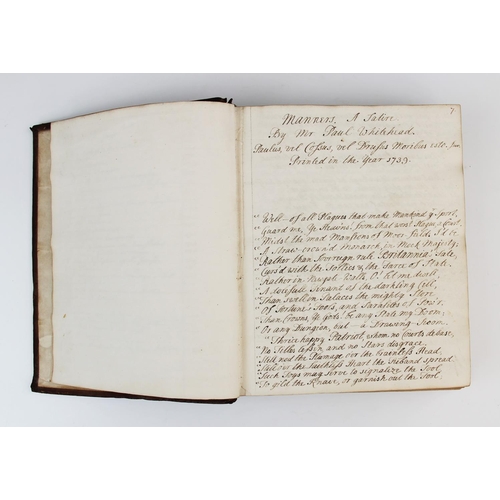 7
Manners, A Satire
By Mr Paul Whitehead.
Paulus, vel Cossus, vel Drusus Moribus esto. Juv.
Printed in the Year 1739.
"Well — of all Plagues that make Mankind yr Sport,
"Guard me, Ye Heavns! from that worst Plague, a Court.
"Midst the mad Mansions of Moor-fields I'd be
"A Straw-crown'd Monarch, in Mock Majesty,
"Rather than Sovereign rule Britannia's Fate,
"Curs'd with the Follies & the Farce of State.
"Rather in Newgate Walls, O! let me dwell,
"A dolefull Tenant of the darkling Cell,
"Than swell in Palaces the mighty Store
"Of Fortune's Fools, and Parasites of Pow'r.
"Than Crowns, Ye Gods! be any State my Doom,
"Or any Dungeon, but a Drawing-Room.
"Thrice happy Patriot, whom no Courts debase,
"No Titles lessen, and no Stars disgrace.
"Still nod the Plumage o'er the brainless Head,
"Still o'er the faithless Heart the Riband spread.
"Such Toys may serve to signalize the Tool,
"To gild the Knave, or garnish out the Fool,